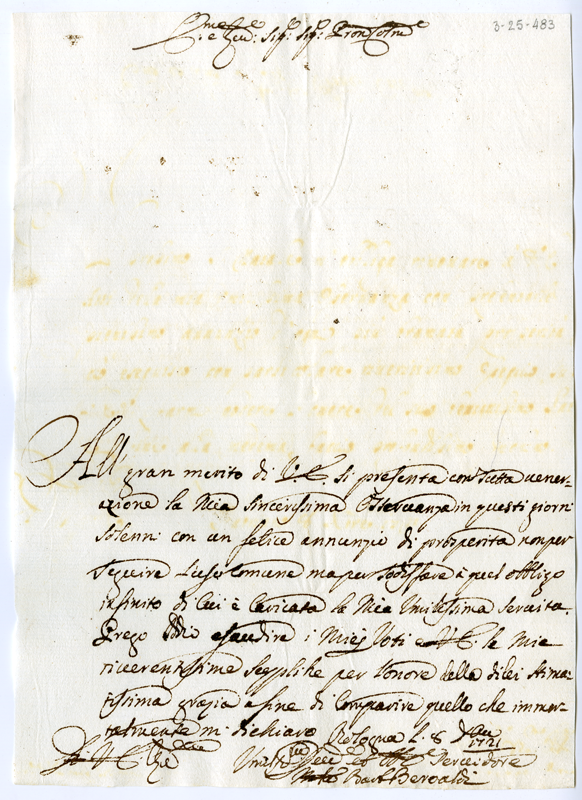 3-25-483
Sig: Sig: Pron Colmo
All gran merito di V E si presenta con tutta vener-
azione la Mia sincerissima Osservanza in questi giorni
solenni con un felice annunzio di prosperità non per
seguire l'uso comune ma per sodisfare à quel obbligo
infinito di cui è Caricata la Mia Umilissima servitù.
Prego Iddio esaudire i Miej Voti e V E le mie
riverentissime Suppliche per l'onore della di lei stima-
tissima grazia a fine di Comparire quello che immor-
talmente mi dichiaro Bologna L 8
1721
Di V E
Umilis Servidore
Bart Beroaldi